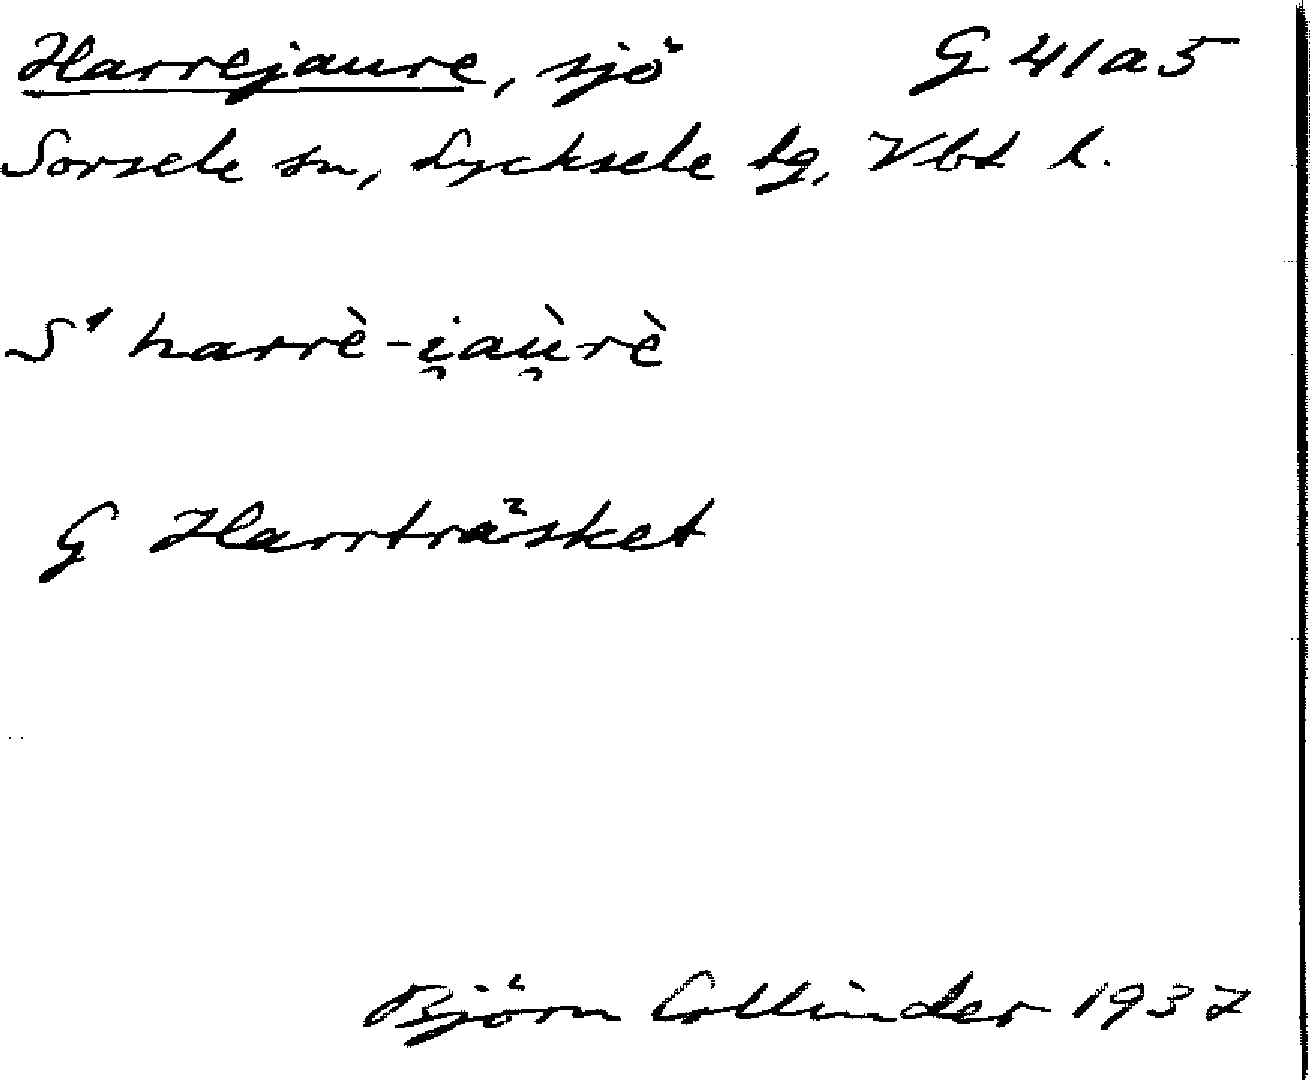 Harrejaure, sjö G 41 a 5
Sorsele sn, Lycksele lg, Vbt l.
S' harrè-i̯aù̯rè
G Harrträsket
Björn Collinder 1937